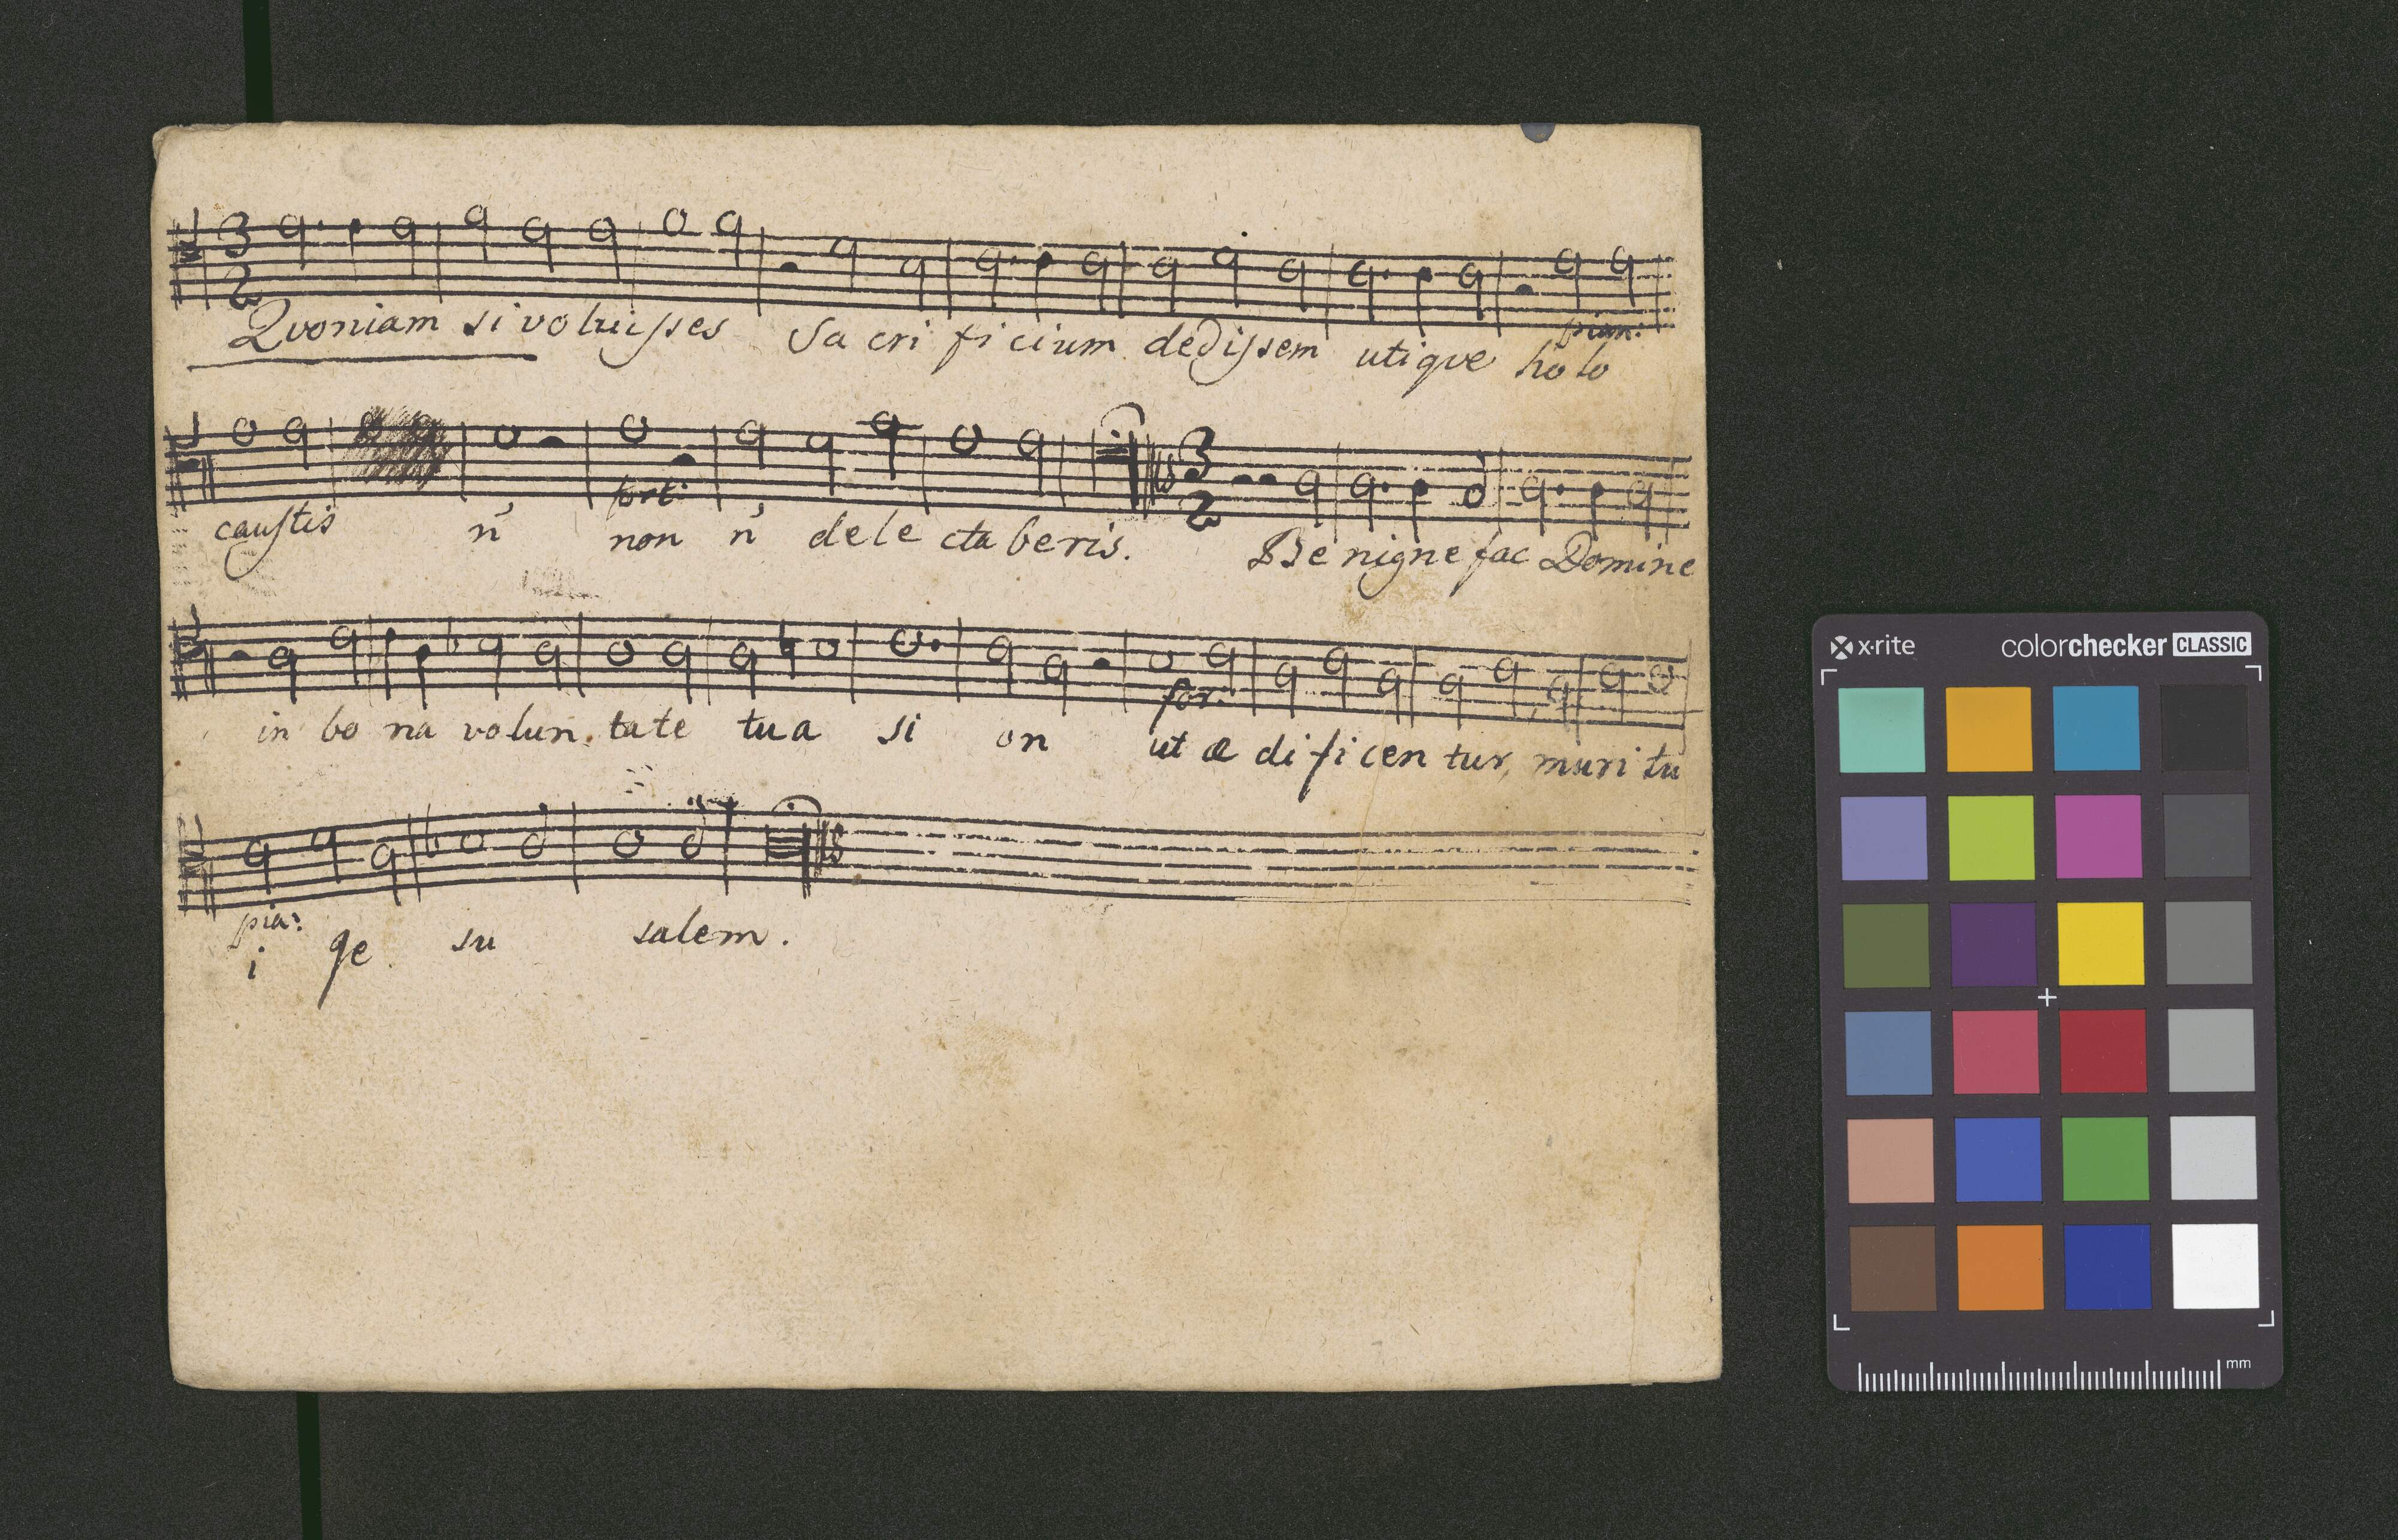 3 2
Quoniam si voluisses Sa cri ficium dedissem utique ho lo
pian:
caustis n̄ non n̄ dele cta beris. Be nigne fac Domine
fort:
3 2
in bo na volun tate tua si on ut æ di fi cen tur, muri tu
for:
pia:
i Je su salem.
x·rite colorchecker CLASSIC
mm